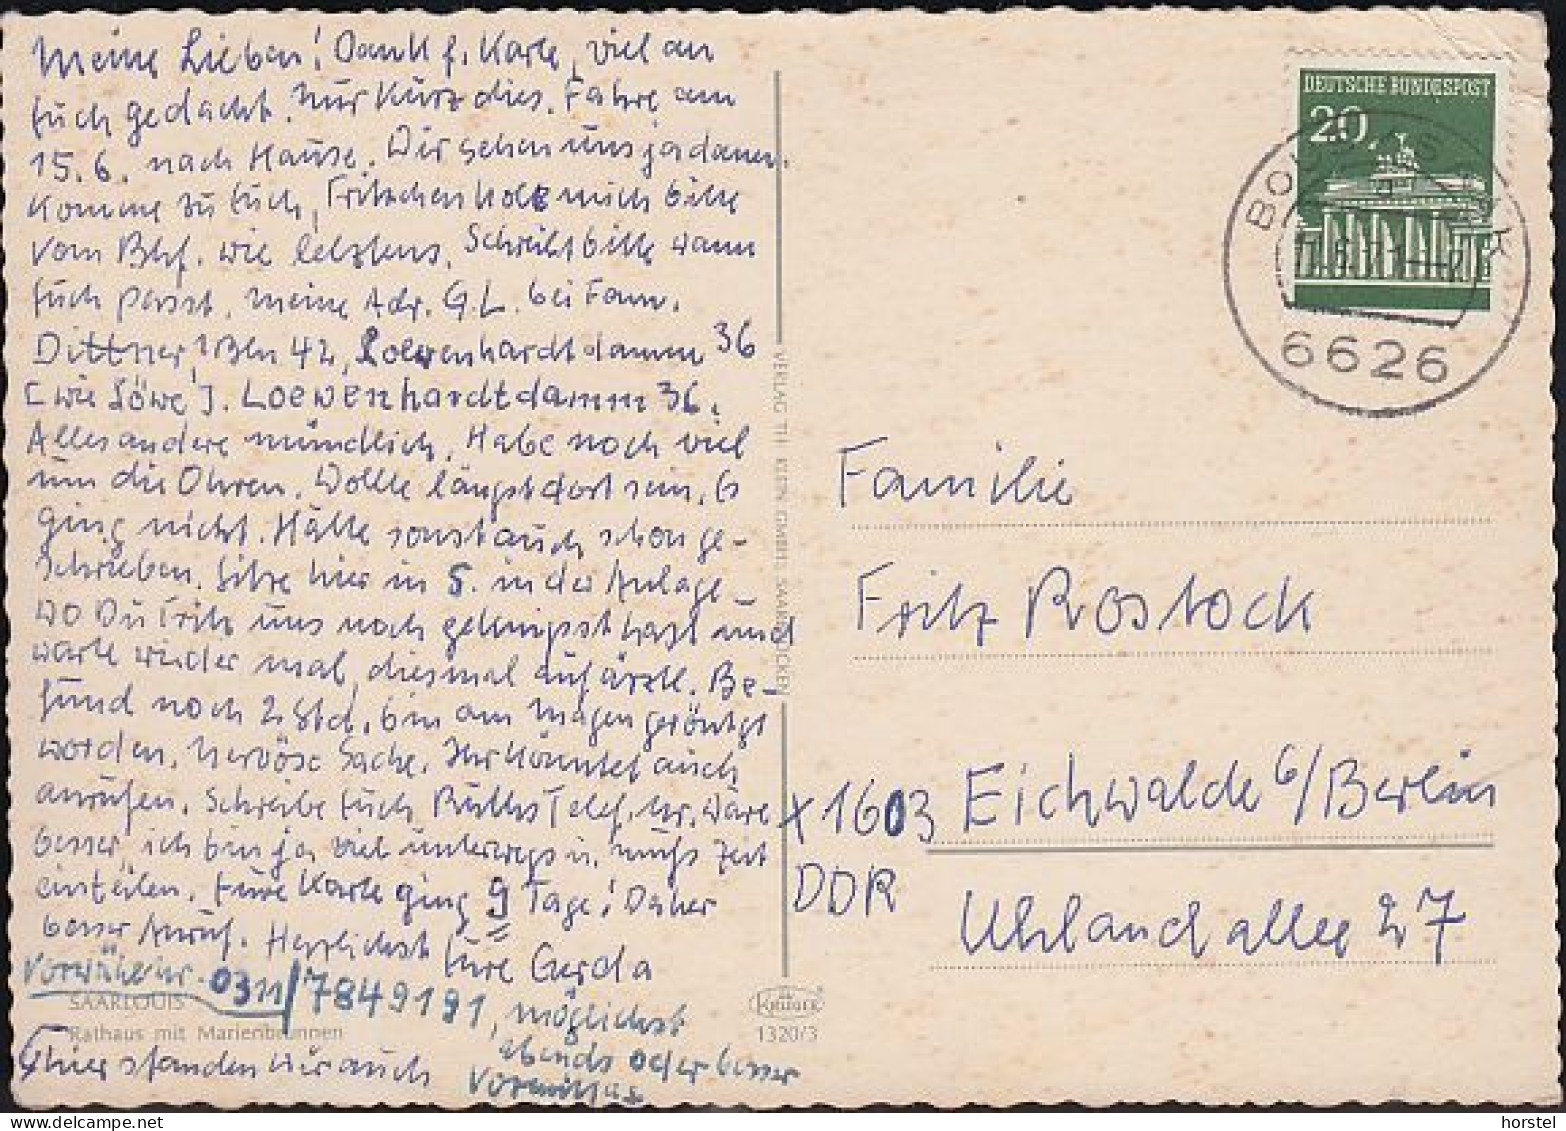 Meine Lieben! Dank f. Karte, viel an
Euch gedacht. Nur kurz dies. Fahre am
15.6. nach Hause. Wir sehen uns ja dann.
Komme zu Euch, Fritzchen hole mich bitte
vom Bhf. wie letztens. Schreibt bitte wann
Euch passt. Meine Adr. G.L. bei Fam.
Dittner, 1 Bln 42, Loewenhardtdamm 36
[wie Löwe]. Loewenhardtdamm 36.
Alles andere mündlich. Habe noch viel
um die Ohren. Wollte längst dort sein. Es
ging nicht. Hätte sonst auch schon ge-
schrieben. Sitze hier in S. in der Anlage
wo Du Fritz uns noch geknipst hast und
warte wieder mal, diesmal auf ärztl. Be-
fund noch 2 Std. bin am Magen geröntgt
worden. Nervöse Sache. Ihr könntet auch
anrufen. Schreibe Euch Ruths Telef. Nr. wäre
besser, ich bin ja viel unterwegs u. muß Zeit
einteilen. Eure Karte ging 9 Tage! Daher
besser Anruf. Herzlichst Eure Gerda
Vorwähl Nr. 0311/7849191, möglichst
abends oder besser
Vormittag
SAARLOUIS
Rathaus mit Marienbrunnen
hier standen wir auch
VERLAG TH. KLEIN GMBH. SAARBRÜCKEN
Krüger
1320/3
DEUTSCHE BUNDESPOST
20
6626
Familie
Fritz Rostock
x 1603 Eichwalde b/Berlin
DDR
Uhlandallee 27
horstel